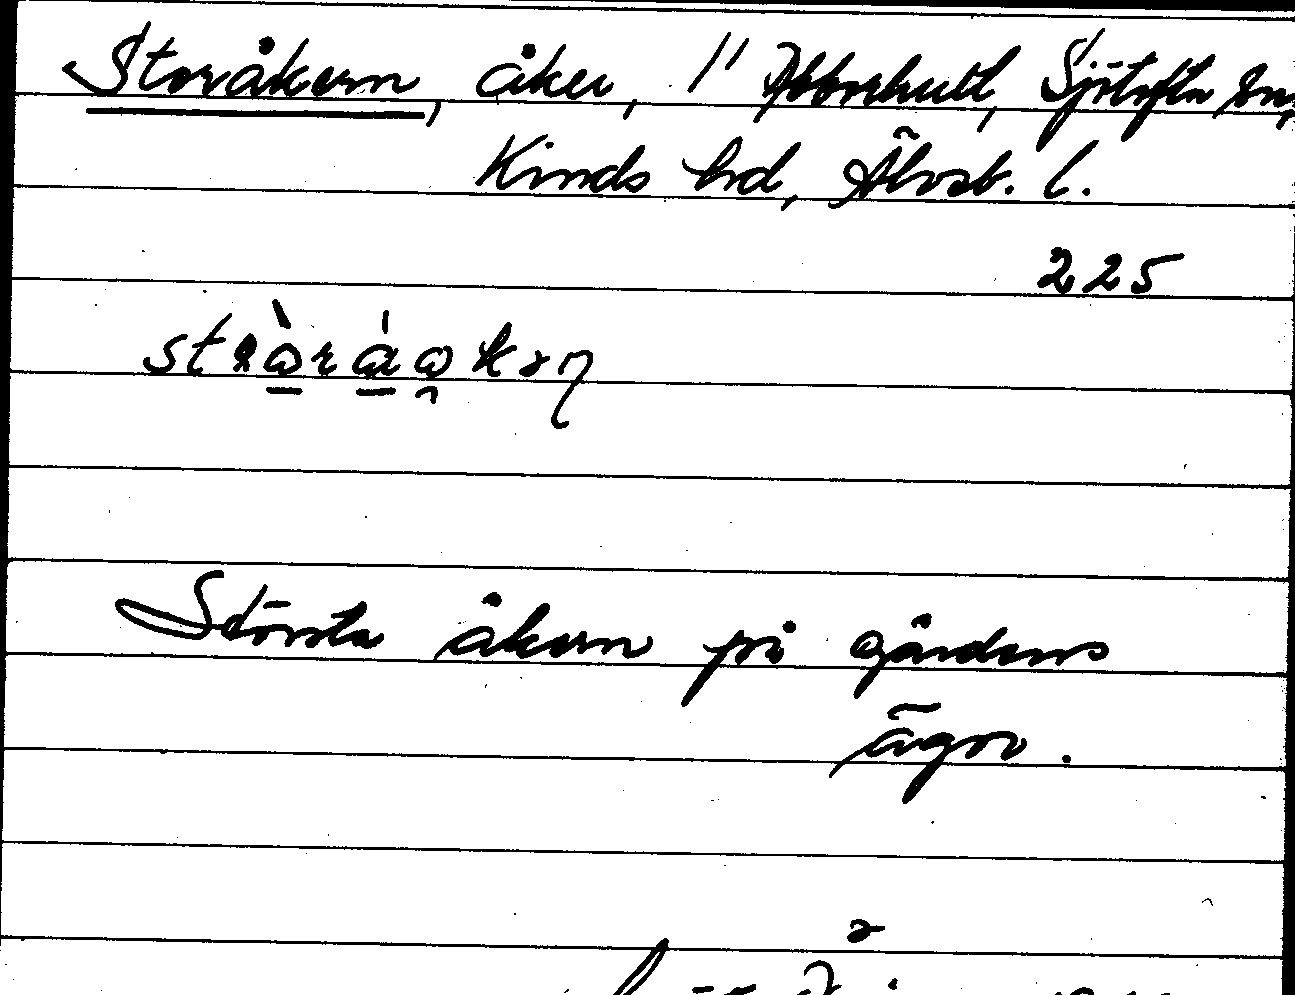 Storåkern, åker, 1/1 Abborhult, Sjötofta sn,
Kinds hd, Älvsb. l.
225
Största åkern på gårdens
ägor.